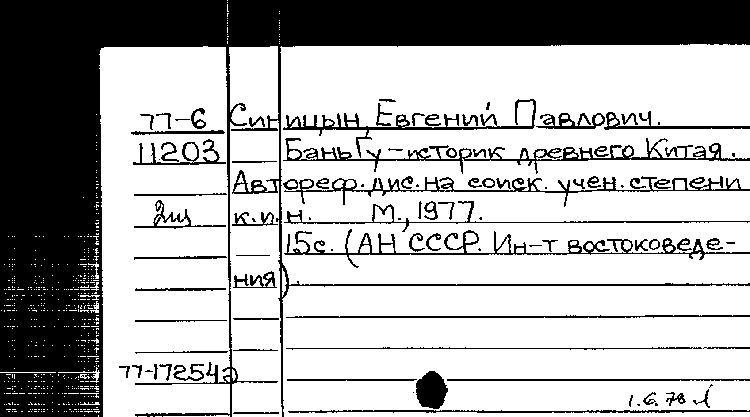 77-6 Синицын, Евгений Павлович.
11203 Бань Гу - историк древнего Китая.
Автореф. дис. на соиск. учен. степени
к.и.н. М., 1977.
15с. (АН СССР. Ин-т востоковеде-
ния).
77-17254а
1.6.78